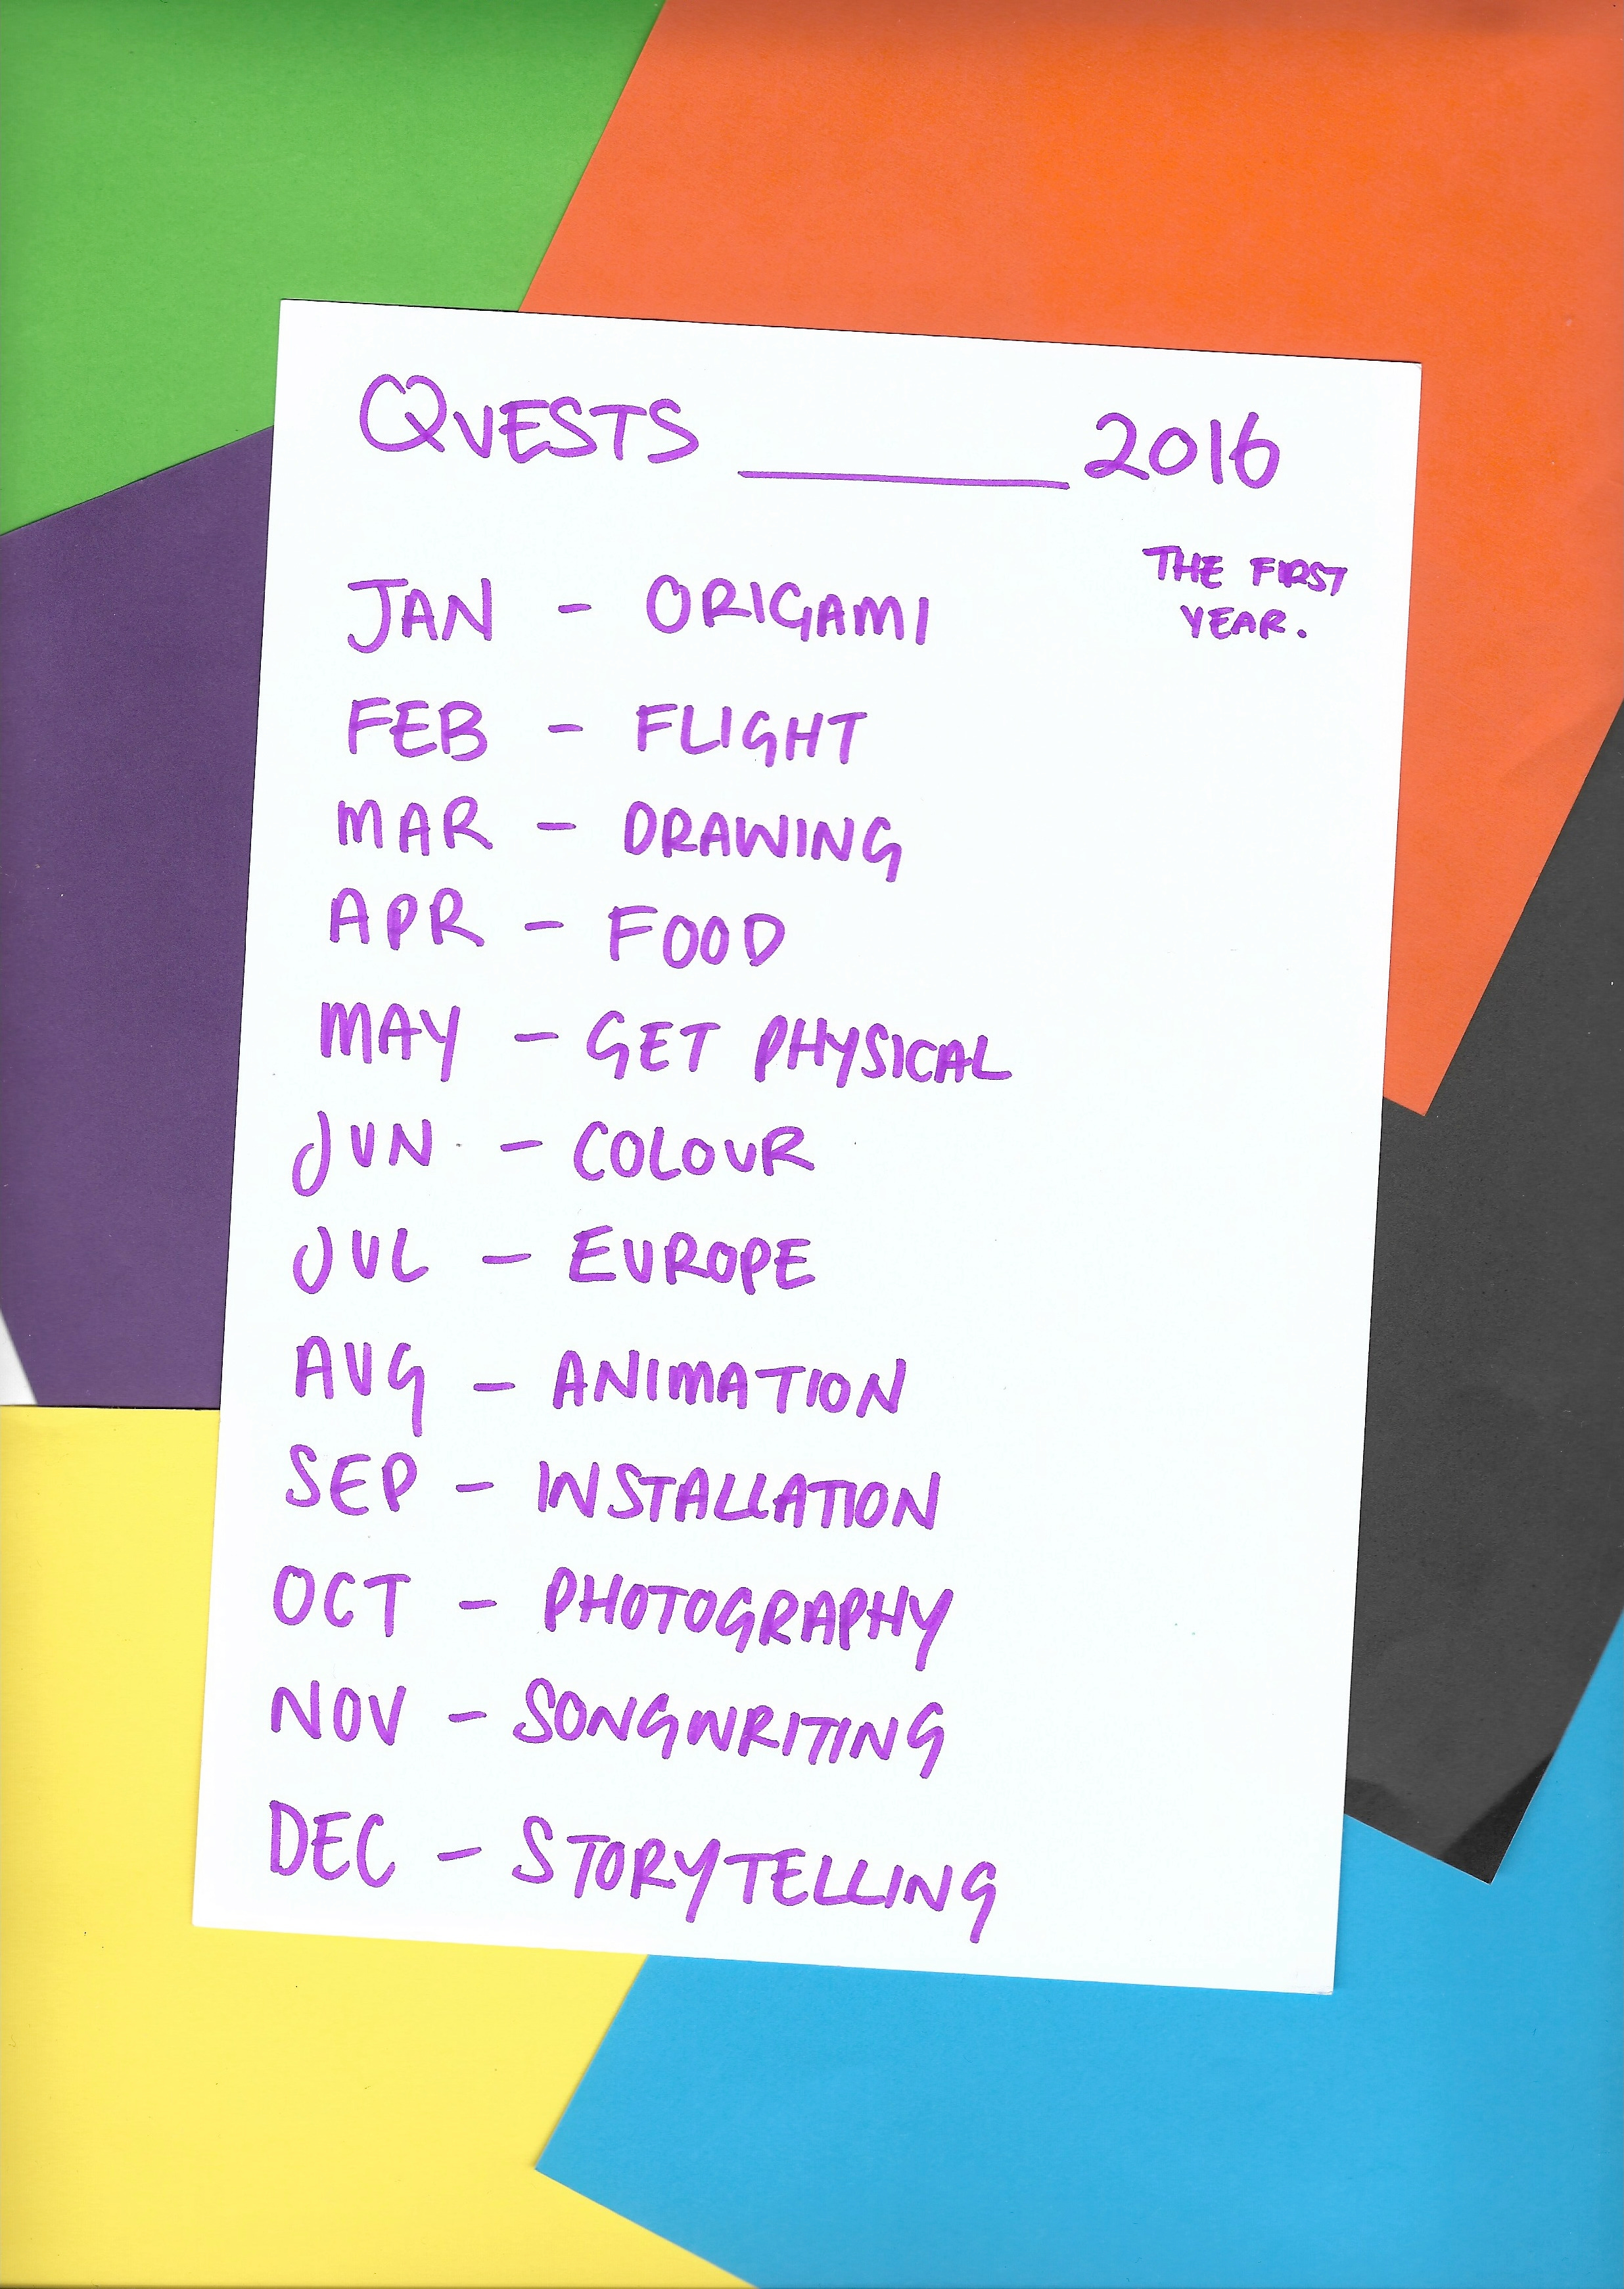 QUESTS ______ 2016
THE FIRST
YEAR.
JAN - ORIGAMI
FEB - FLIGHT
MAR - DRAWING
APR - FOOD
MAY - GET PHYSICAL
JUN - COLOUR
JUL - EUROPE
AUG - ANIMATION
SEP - INSTALLATION
OCT - PHOTOGRAPHY
NOV - SONGWRITING
DEC - STORYTELLING